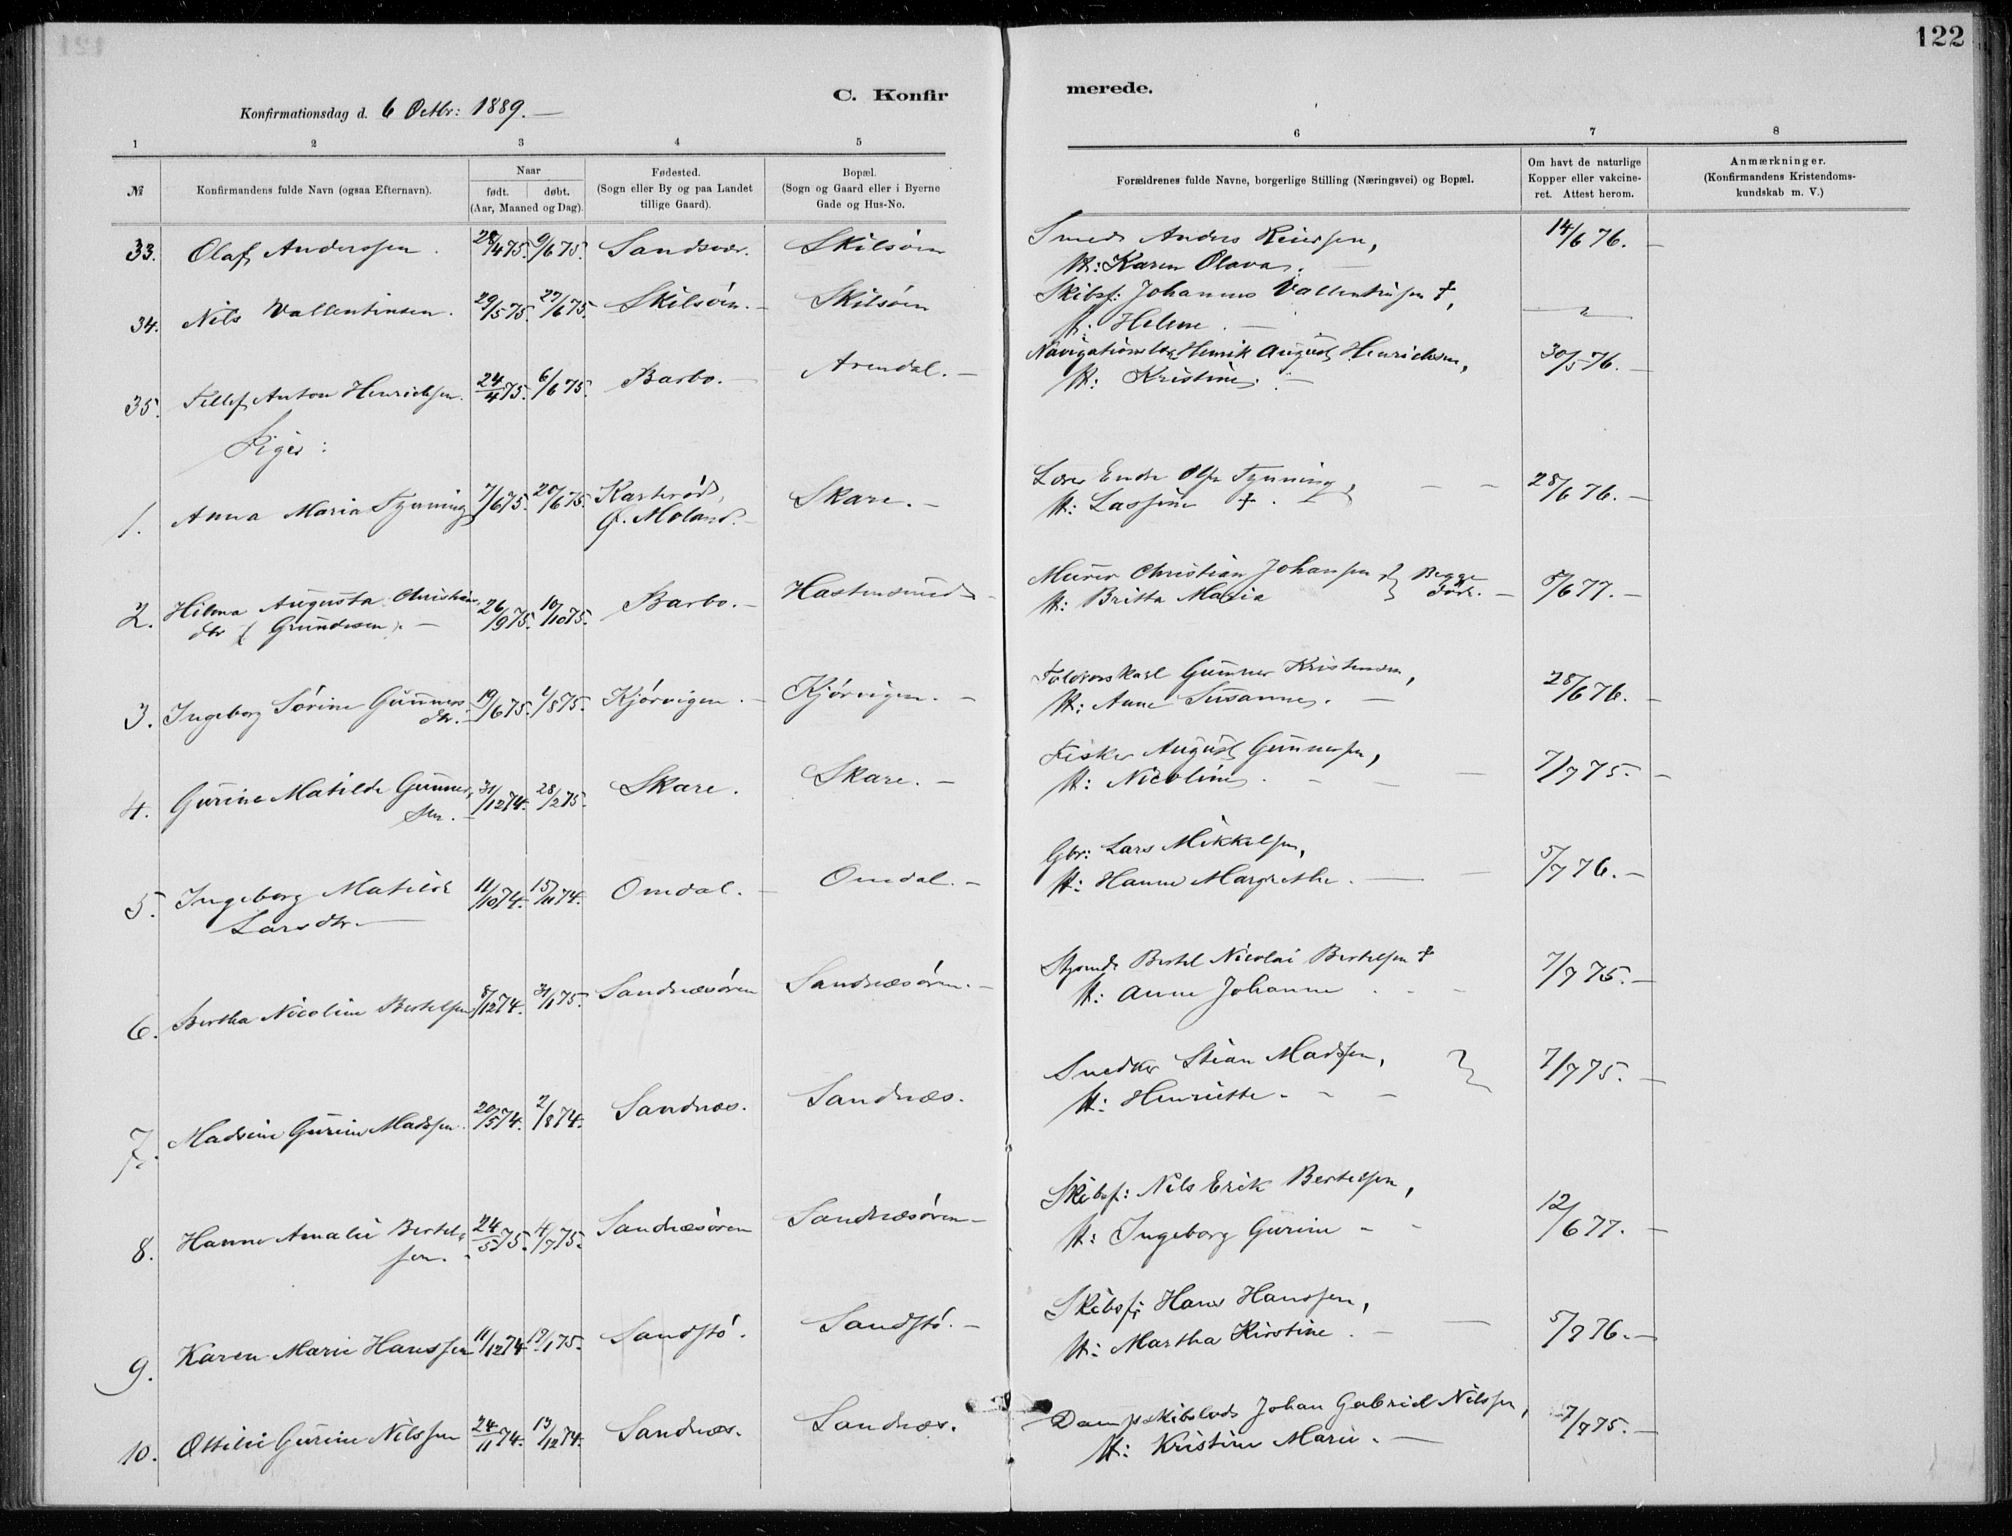 122
C. Konfirmerede.
Konfirmationsdag d. 6 Octbr: 1889. —
1 2 3 4 5 6 7 8
№
Konfirmandens fulde Navn (ogsaa Efternavn).
Naar
født. døbt.
(Aar, Maaned og Dag).
Fødested.
(Sogn eller By og paa Landet
tillige Gaard).
Bopæl.
(Sogn og Gaard eller i Byerne
Gade og Hus-No.
Forældrenes fulde Navne, borgerlige Stilling (Næringsvei) og Bopæl.
Om havt de naturlige
Kopper eller vakcine-
ret. Attest herom.
Anmærkninger.
(Konfirmandens Kristendoms-
kundskab m. V.)
33. Olaf Anderssen. 28/4 75. 9/6 75. Sandsvær. Skilsöen Smed Anders Reiersen, 14/6 76. —
H: Karen Olava. —
34. Nils Vallentinsen. 29/5 75. 27/6 75. Skilsöen. — Skilsöen Skibsf: Johannes Vallentinsen †, — " —
H: Helene. —
35. Tellef Anton Henrichsen. 24/4 75. 6/6 75. Barbo. — Arendal. — Navigationslær Henrik August Henrichsen, 30/5 76. —
H: Kristine. —
Piger:
1. Anna Maria Tynning 7/6 75. 20/6 75. Skare. — Lærer Endre Olsen Tynning, — — 28/6 76. —
Ø. Moland. — H: Lassine †. —
2. Hilma Augusta Christians 26/9 75. 10/10 75. Barbo. — Hastensund — Murer Christian Johansen } Begge 5/6 77. —
dtr (Grundesen). — H: Britta Maria } døde. —
3. Ingeborg Sörine Gunners 19/6 75. 1/8 75. Kjörvigen. — Kjörvigen. — Toldroerskarl Gunner Kristensen, 28/6 76. —
dtr. — H: Anne Susanne. —
4. Gurine Matilde Gunner 31/12 74. 28/2 75. Skare. Skare. — Fisker August Gunnersen, 7/7 75. —
sen. — H: Nicoline. — — —
5. Ingeborg Matilde 11/10 74. 15/11 74. Omdal. — Omdal. — Gbr: Lars Mikkelsen, 5/7 76. —
Larsdtr. — H: Hanne Margrethe. — —
6. Bertha Nicoline Bertelsen 8/12 74. 31/1 75. Sandnæsören Sandnæsören. — Styrmd: Bertel Nicolai Bertelsen † 7/7 75. —
H: Anne Johanne. — —
7. Madsine Gurine Madssen. 20/5 74. 2/8 74. Sandnæs. Sandnæs. Snedker Stian Madssen, 7/7 75. —
H: Henriette. — — —
8. Hanne Amalie Bertel 24/5 75. 4/7 75. Sandnæsören Sandnæsören — Skibsf: Nils Erik Bertelsen, 12/6 77. —
sen. — H: Ingeborg Gurine — —
9. Karen Marie Hanssen 11/12 74. 17/1 75. Sandstö. Sandstö. — Skibsf: Hans Hanssen, 5/7 76. —
H: Martha Kirstine. — —
10. Ottilie Gurine Nilssen 24/11 74. 13/12 74. Sandnæs. Sandnæs. Dampskibslods Johan Gabriel Nilssen, 7/7 75. —
H: Kristine Marie. —